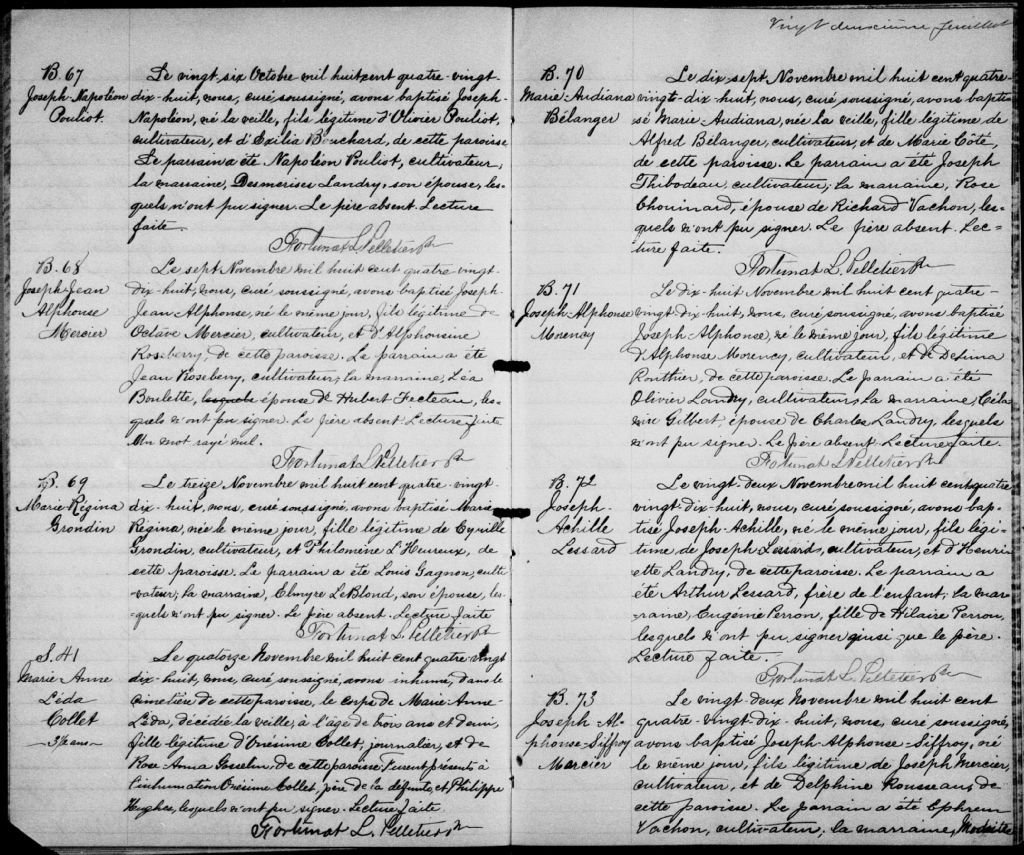 B. 67
Joseph-Napoléon
Pouliot.
Le vingt-six Octobre mil huit cent quatre-vingt-
dix-huit, nous, curé soussigné, avons baptisé Joseph-
Napoléon, né la veille, fils légitime d'Olivier Pouliot,
cultivateur, et d'Exilia Bouchard, de cette paroisse
Le parrain a été Napoléon Pouliot, cultivateur,
la marraine, Desmerises Landry, son épouse, les-
quels n'ont pu signer. Le père absent. Lecture
faite.
Fortunat L. Pelletier Ptre
B. 68
Joseph-Jean
Alphonse
Mercier
Le sept Novembre mil huit cent quatre-vingt-
dix-huit, nous, curé soussigné, avons baptisé Joseph-
Jean-Alphonse, né le même jour, fils légitime de
Octave Mercier, cultivateur, et d'Alphonsine
Roseberry, de cette paroisse. Le parrain a été
Jean Roseberry, cultivateur; la marraine, Léa
Boulette, lesquels épouse de Hubert Fecteau, les-
quels n'ont pu signer. Le père absent. Lecture faite.
Un mot rayé nul.
Fortunat L. Pelletier Ptre
B. 69
Marie-Régina
Grondin
Le treize Novembre mil huit cent quatre-vingt-
dix-huit, nous, curé soussigné, avons baptisé Marie-
Régina, née le même jour, fille légitime de Cyville
Grondin, cultivateur, et Philomène L'Heureux, de
cette paroisse. Le parrain a été Louis Gagnon, culti-
vateur; la marraine, Elmyre LeBlond, son épouse, les-
quels n'ont pu signer. Le père absent. Lecture faite
Fortunat L. Pelletier Ptre
S. 41
Marie-Anne
Léda
Collet
— 3½ ans —
Le quatorze Novembre mil huit cent quatre-vingt
dix-huit, nous, curé soussigné, avons inhumé, dans le
cimetière de cette paroisse, le corps de Marie-Anne-
Léda, décédée la veille, à l'âge de trois ans et demi,
fille légitime d'Onésime Collet, journalier, et de
Rose-Anna Gosselin, de cette paroisse. Furent présents à
l'inhumation Onésime Collet, père de la défunte, et Philippe
Hughes, lesquels n'ont pu signer. Lecture faite.
Fortunat L. Pelletier Ptre
Vingt deuxième feuillet
B. 70
Marie-Audiana
Bélanger
Le dix-sept Novembre mil huit cent quatre-
vingt-dix-huit, nous, curé soussigné, avons bapti-
sé Marie-Audiana, née la veille, fille légitime de
Alfred Bélanger, cultivateur, et de Marie Côté,
de cette paroisse. Le parrain a été Joseph
Thibodeau, cultivateur; la marraine, Rose
Chouinard, épouse de Richard Vachon, les-
quels n'ont pu signer. Le père absent. Lec-
ture faite.
Fortunat L. Pelletier Ptre
B. 71
Joseph-Alphonse
Morency
Le dix-huit Novembre mil huit cent quatre-
vingt-dix-huit, nous, curé soussigné, avons baptisé
Joseph-Alphonse, né le même jour, fils légitime
d'Alphonse Morency, cultivateur, et de Delima
Ronthier, de cette paroisse. Le parrain a été
Olivier Landry, cultivateur; la marraine, Céla-
nire Gilbert, épouse de Charles Landry, lesquels
n'ont pu signer. Le père absent. Lecture faite.
Fortunat L. Pelletier Ptre
B. 72
Joseph-
Achille
Lessard
Le vingt-deux Novembre mil huit cent quatre
vingt-dix-huit, nous, curé soussigné, avons bap-
tisé Joseph-Achille, né le même jour, fils légi-
time de Joseph Lessard, cultivateur, et d'Henri-
ette Landry, de cette paroisse. Le parrain a
été Arthur Lessard, frère de l'enfant; la mar-
raine, Eugénie Perron, fille de Hilaire Perron,
lesquels n'ont pu signer ainsi que le père.
Lecture faite.
Fortunat L. Pelletier Ptre
B. 73
Joseph-Al-
phonse-Siffroy
Mercier
Le vingt-deux Novembre mil huit cent
quatre-vingt-dix-huit, nous, curé soussigné,
avons baptisé Joseph-Alphonse-Siffroy, né
le même jour, fils légitime de Joseph Mercier,
cultivateur, et de Delphine Rousseau, de
cette paroisse. Le parrain a été Ephrem
Vachon, cultivateur; la marraine, Modeste